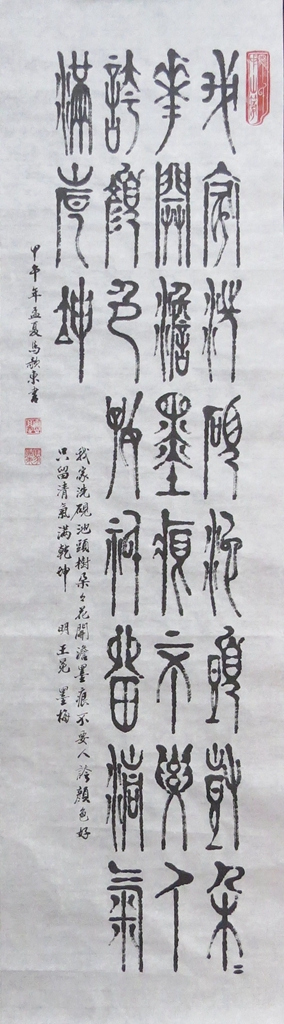 我家洗硯池頭樹朵々
華開澹墨痕不要人
誇顏色好祇留清氣
滿乾坤
我家洗硯池頭樹朵々花開澹墨痕不要人誇顏色好
只留清氣滿乾坤 明王冕 墨梅
甲午年孟夏馬歌東書